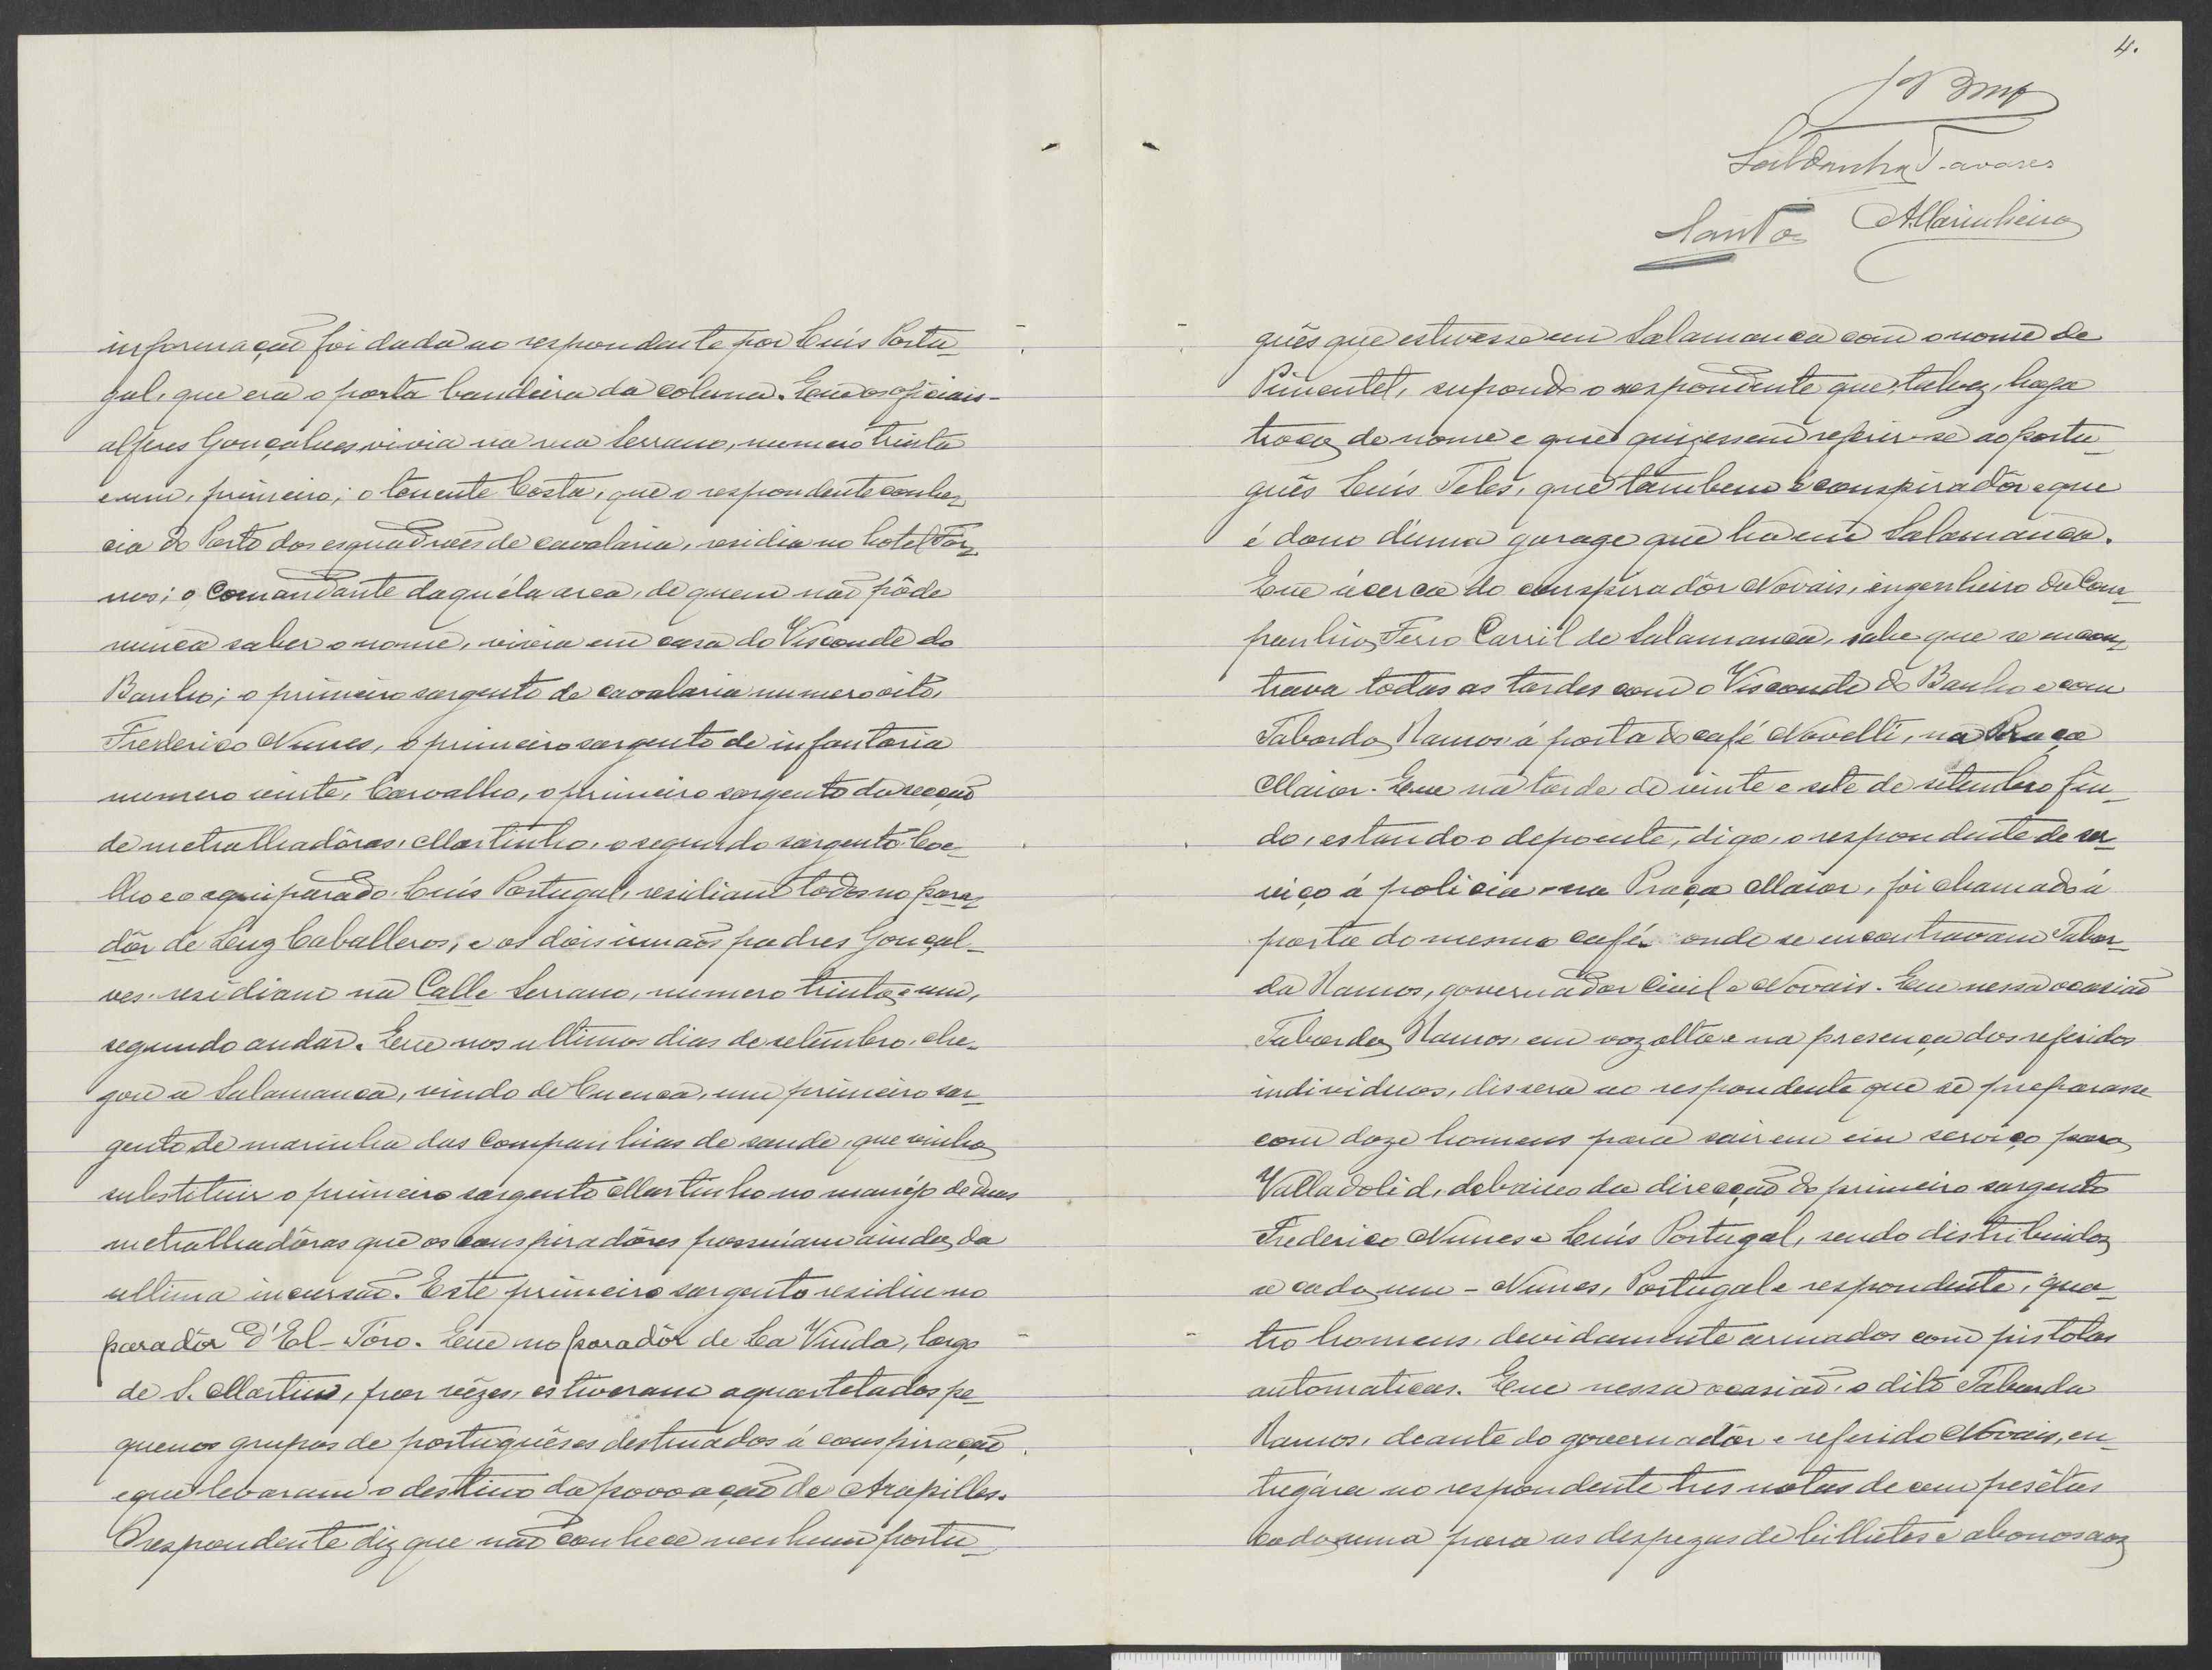 informação foi dada ao respondente por Luís Portu-
gal, que era o porta bandeira da coluna. Que os oficiais-
alferes Gonçalves, vivia na rua Serrano, numero trinta
e um, primeiro; o tenente Costa, que o respondente conhe-
cia do Porto dos esquadrões de cavalaria, residia no hotel Tor-
nes; o comandante daquéla area, de quem não pôde
nunca saber o nome, vivia em casa do Visconde do
Banho; o primeiro sargento de cavalaria numero oito,
Frederico Nunes, o primeiro sargento de infantaria
numero vinte, Carvalho, o primeiro sargento da secção
de metralhadôras, Martinho, o segundo sargento Coe-
lho e o equiparado Luís Portugal, residiam todos no para-
dôr de Caballeros, e os dois irmãos padres Gonçal-
ves, residiam na Calle Serrano, numero trinta e um,
segundo andar. Que nos ultimos dias de setembro, che-
gou a Salamanca, vindo de Cuenca, um primeiro sar-
gento de marinha das Companhias de saude, que vinha
substituir o primeiro sargento Martinho no manejo de duas
metralhadôras que os conspiradôres possuíam ainda da
ultima incursão. Este primeiro sargento residiu no
parador d'El-Tóro. Que no paradôr de La Viuda, largo
de S. Martin, por vêzes, estiveram aquartelados pe-
quenos grupos de portuguêses destinados á conspiração
e que levaram o destino da povoação de Arapilles.
O respondente diz que não conhece nenhum portu-
4.
Saldanha Tavares
Santos AMarinheiro
guês que estivesse em Salamanca com o nome de
Pimentel, supondo o respondente que, talvez, haja
troca de nome e que quizessem referir-se ao portu-
guês Luís Teles, que tambem é conspiradôr e que
é dono d'uma garage que ha em Salamanca.
Que ácerca do conspiradôr Novais, engenheiro da Com-
panhia Ferro Carril de Salamanca, sabe que se encon-
trava todas as tardes com o Visconde do Banho e com
Taborda Ramos á porta do café Novelti, na Praça
Maior. Que na tarde de vinte e sete de setembro fin-
do, estando o depoente, digo, o respondente de ser-
viço á policia na Praça Maior, foi chamado á
porta do mesmo café onde se encontravam Tabor-
da Ramos, governador Civil e Novais. Que nessa ocasião
Taborda Ramos, em voz alta e na presença dos referidos
individuos, dissera ao respondente que se preparasse
com doze homens para sairem em serviço para
Valladolid, debaixo da direcção do primeiro sargento
Frederico Nunes e Luís Portugal, sendo distribuidos
a cada um - Nunes, Portugal e respondente, qua-
tro homens, devidamente armados com pistolas
automaticas. Que nessa ocasião, o dito Taborda
Ramos, deante do governadôr e referido Novais, en-
tregára ao respondente tres notas de cem pesêtas
cada uma para as despezas de bilhetes e abonos aos